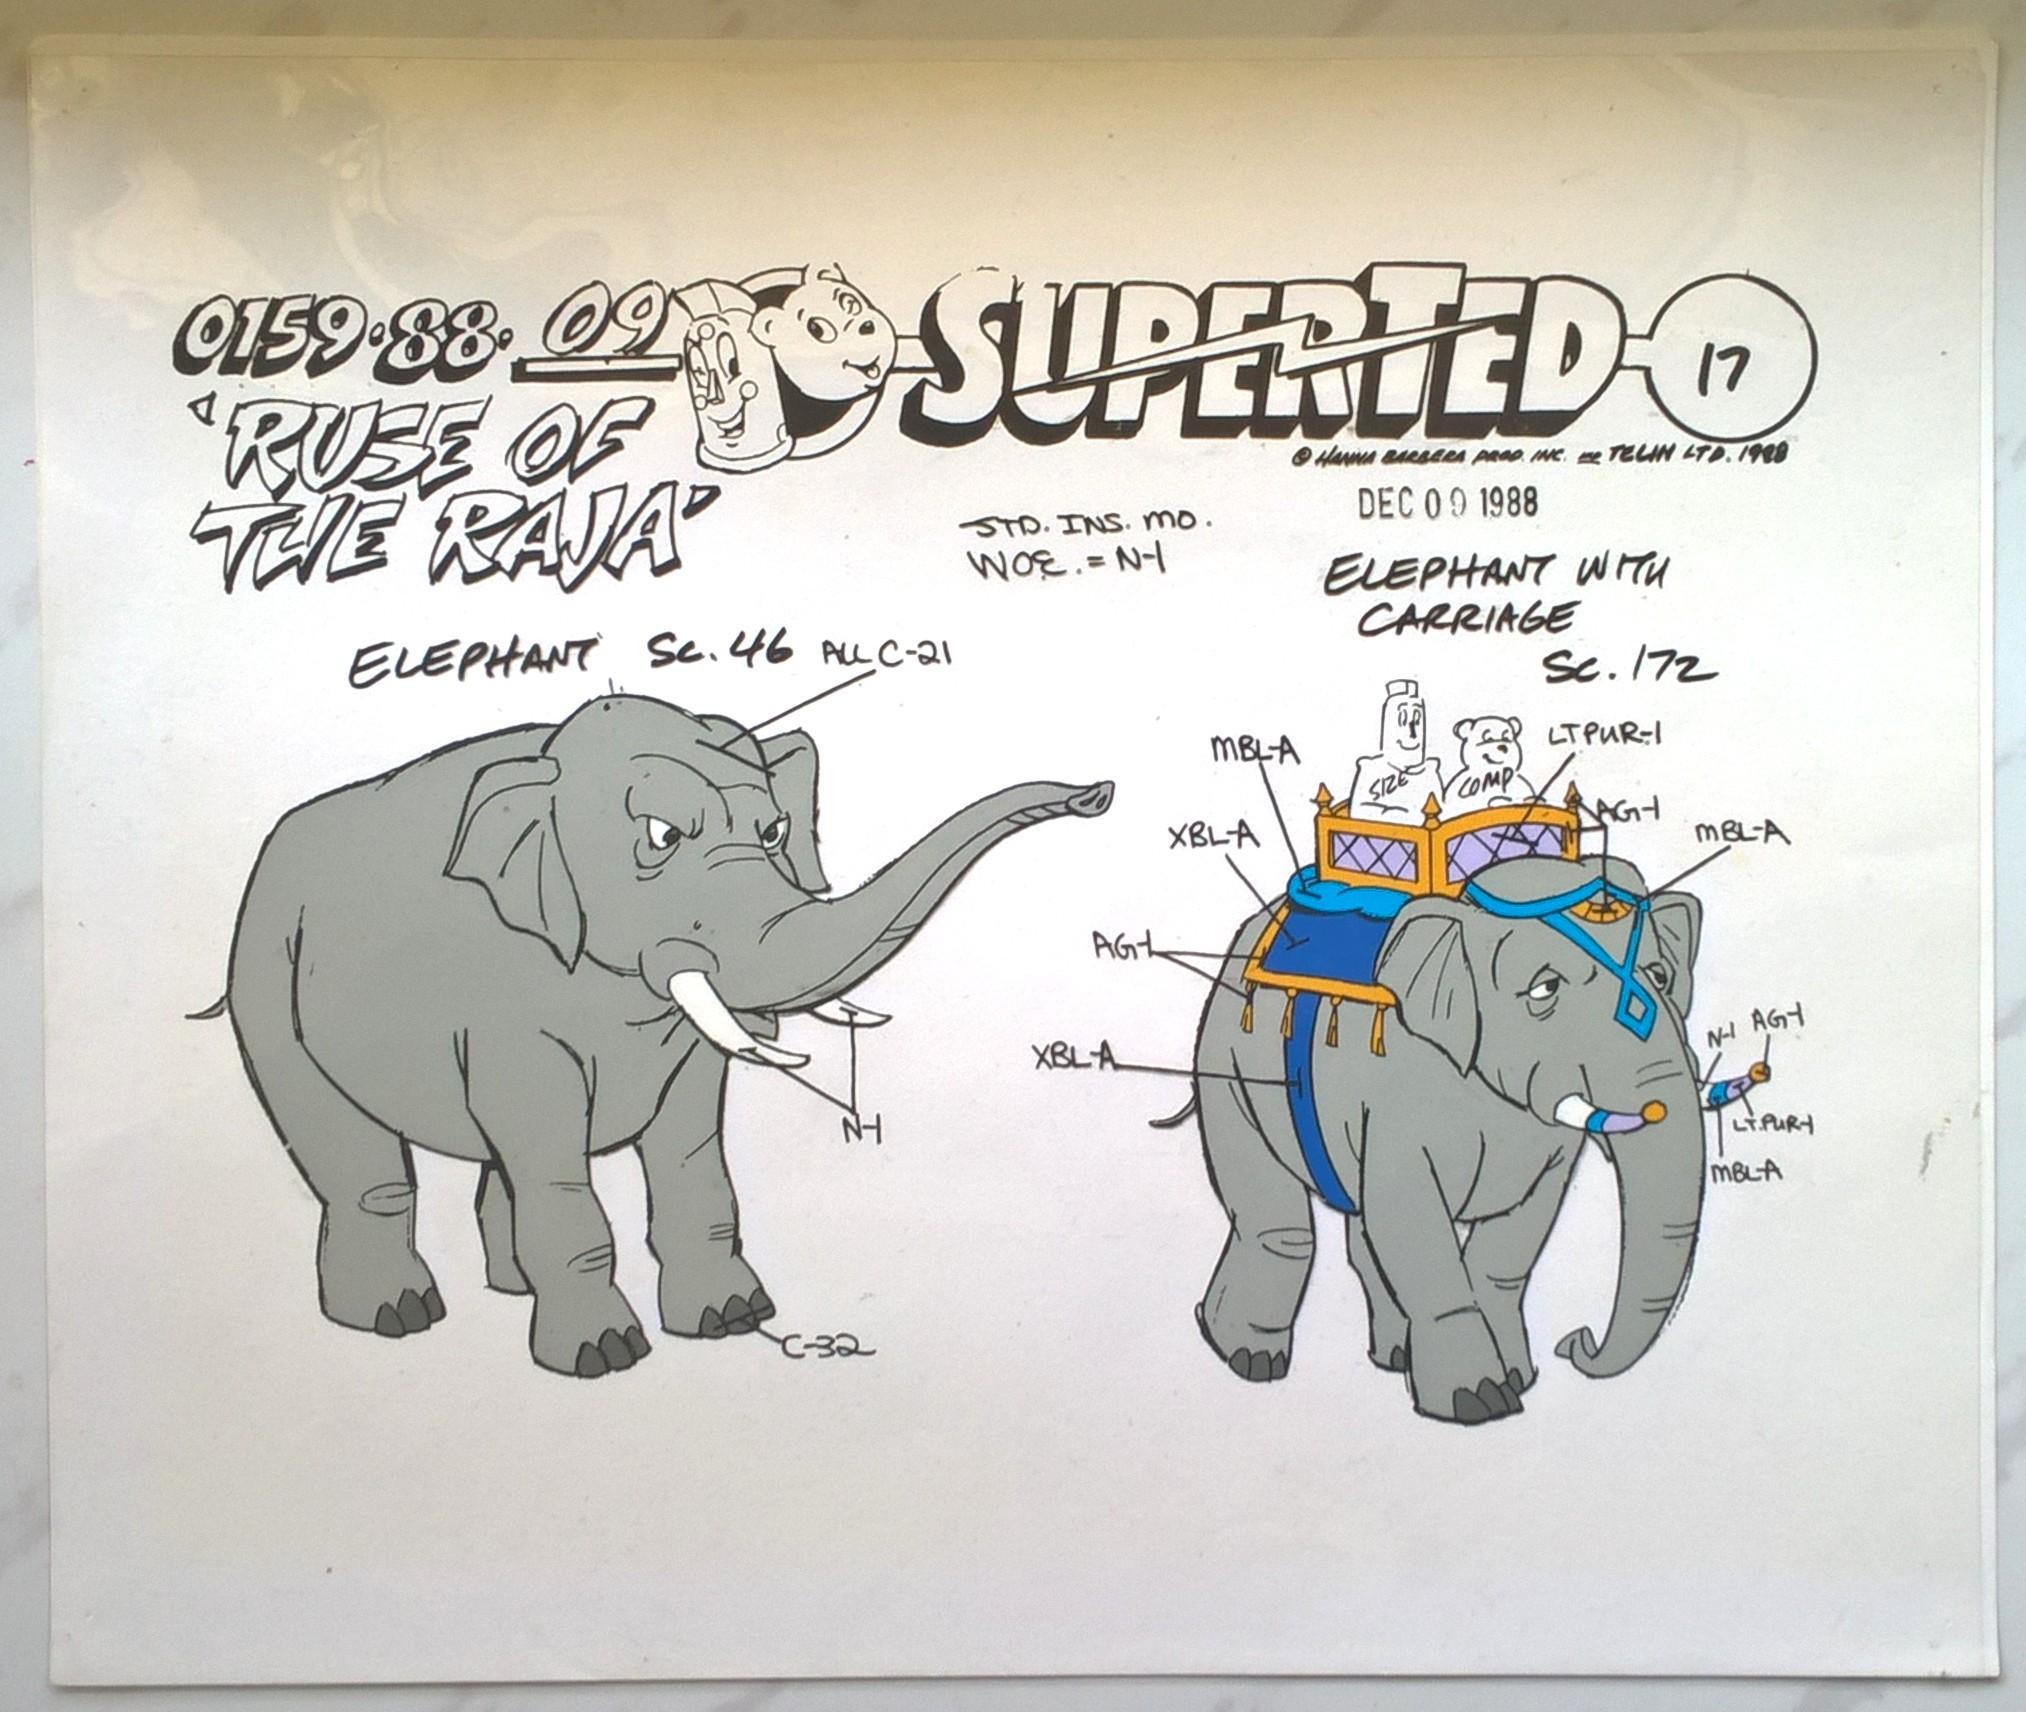 0159·88·09 SUPERTED 17
'RUSE OF
THE RAJA'
© HANNA BARBERA PROD. INC. AND TELIN LTD. 1988
DEC 09 1988
STD. INS. MO.
WOE. = N-1
ELEPHANT WITH
CARRIAGE
SC. 172
ELEPHANT SC. 46 ALL C-21
N-1
C-32
SIZE COMP
MBL-A
LT PUR-1
XBL-A
AG-1
MBL-A
AG-1
XBL-A
N-1 AG-1
LT. PUR-1
MBL-A